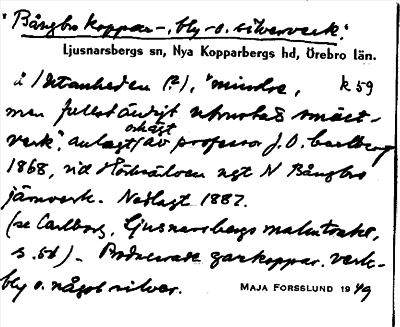 "Bångbro koppar-, bly- o. silververk".
Ljusnarsbergs sn, Nya Kopparbergs hd, Örebro län.
å (?), "mindre, k 59
men fullständigt utrustat smält-
verk", anlagt av professor J. O. Carlborg
1868, vid Hörksälven ngt N Bångbro
järnverk. Nedlagt 1887.
(se Carlborg, Ljusnarsbergs malmtrakt,
s. 58) - Producerade garkoppar. verk-
bly o. något silver. MAJA FORSSLUND 1949